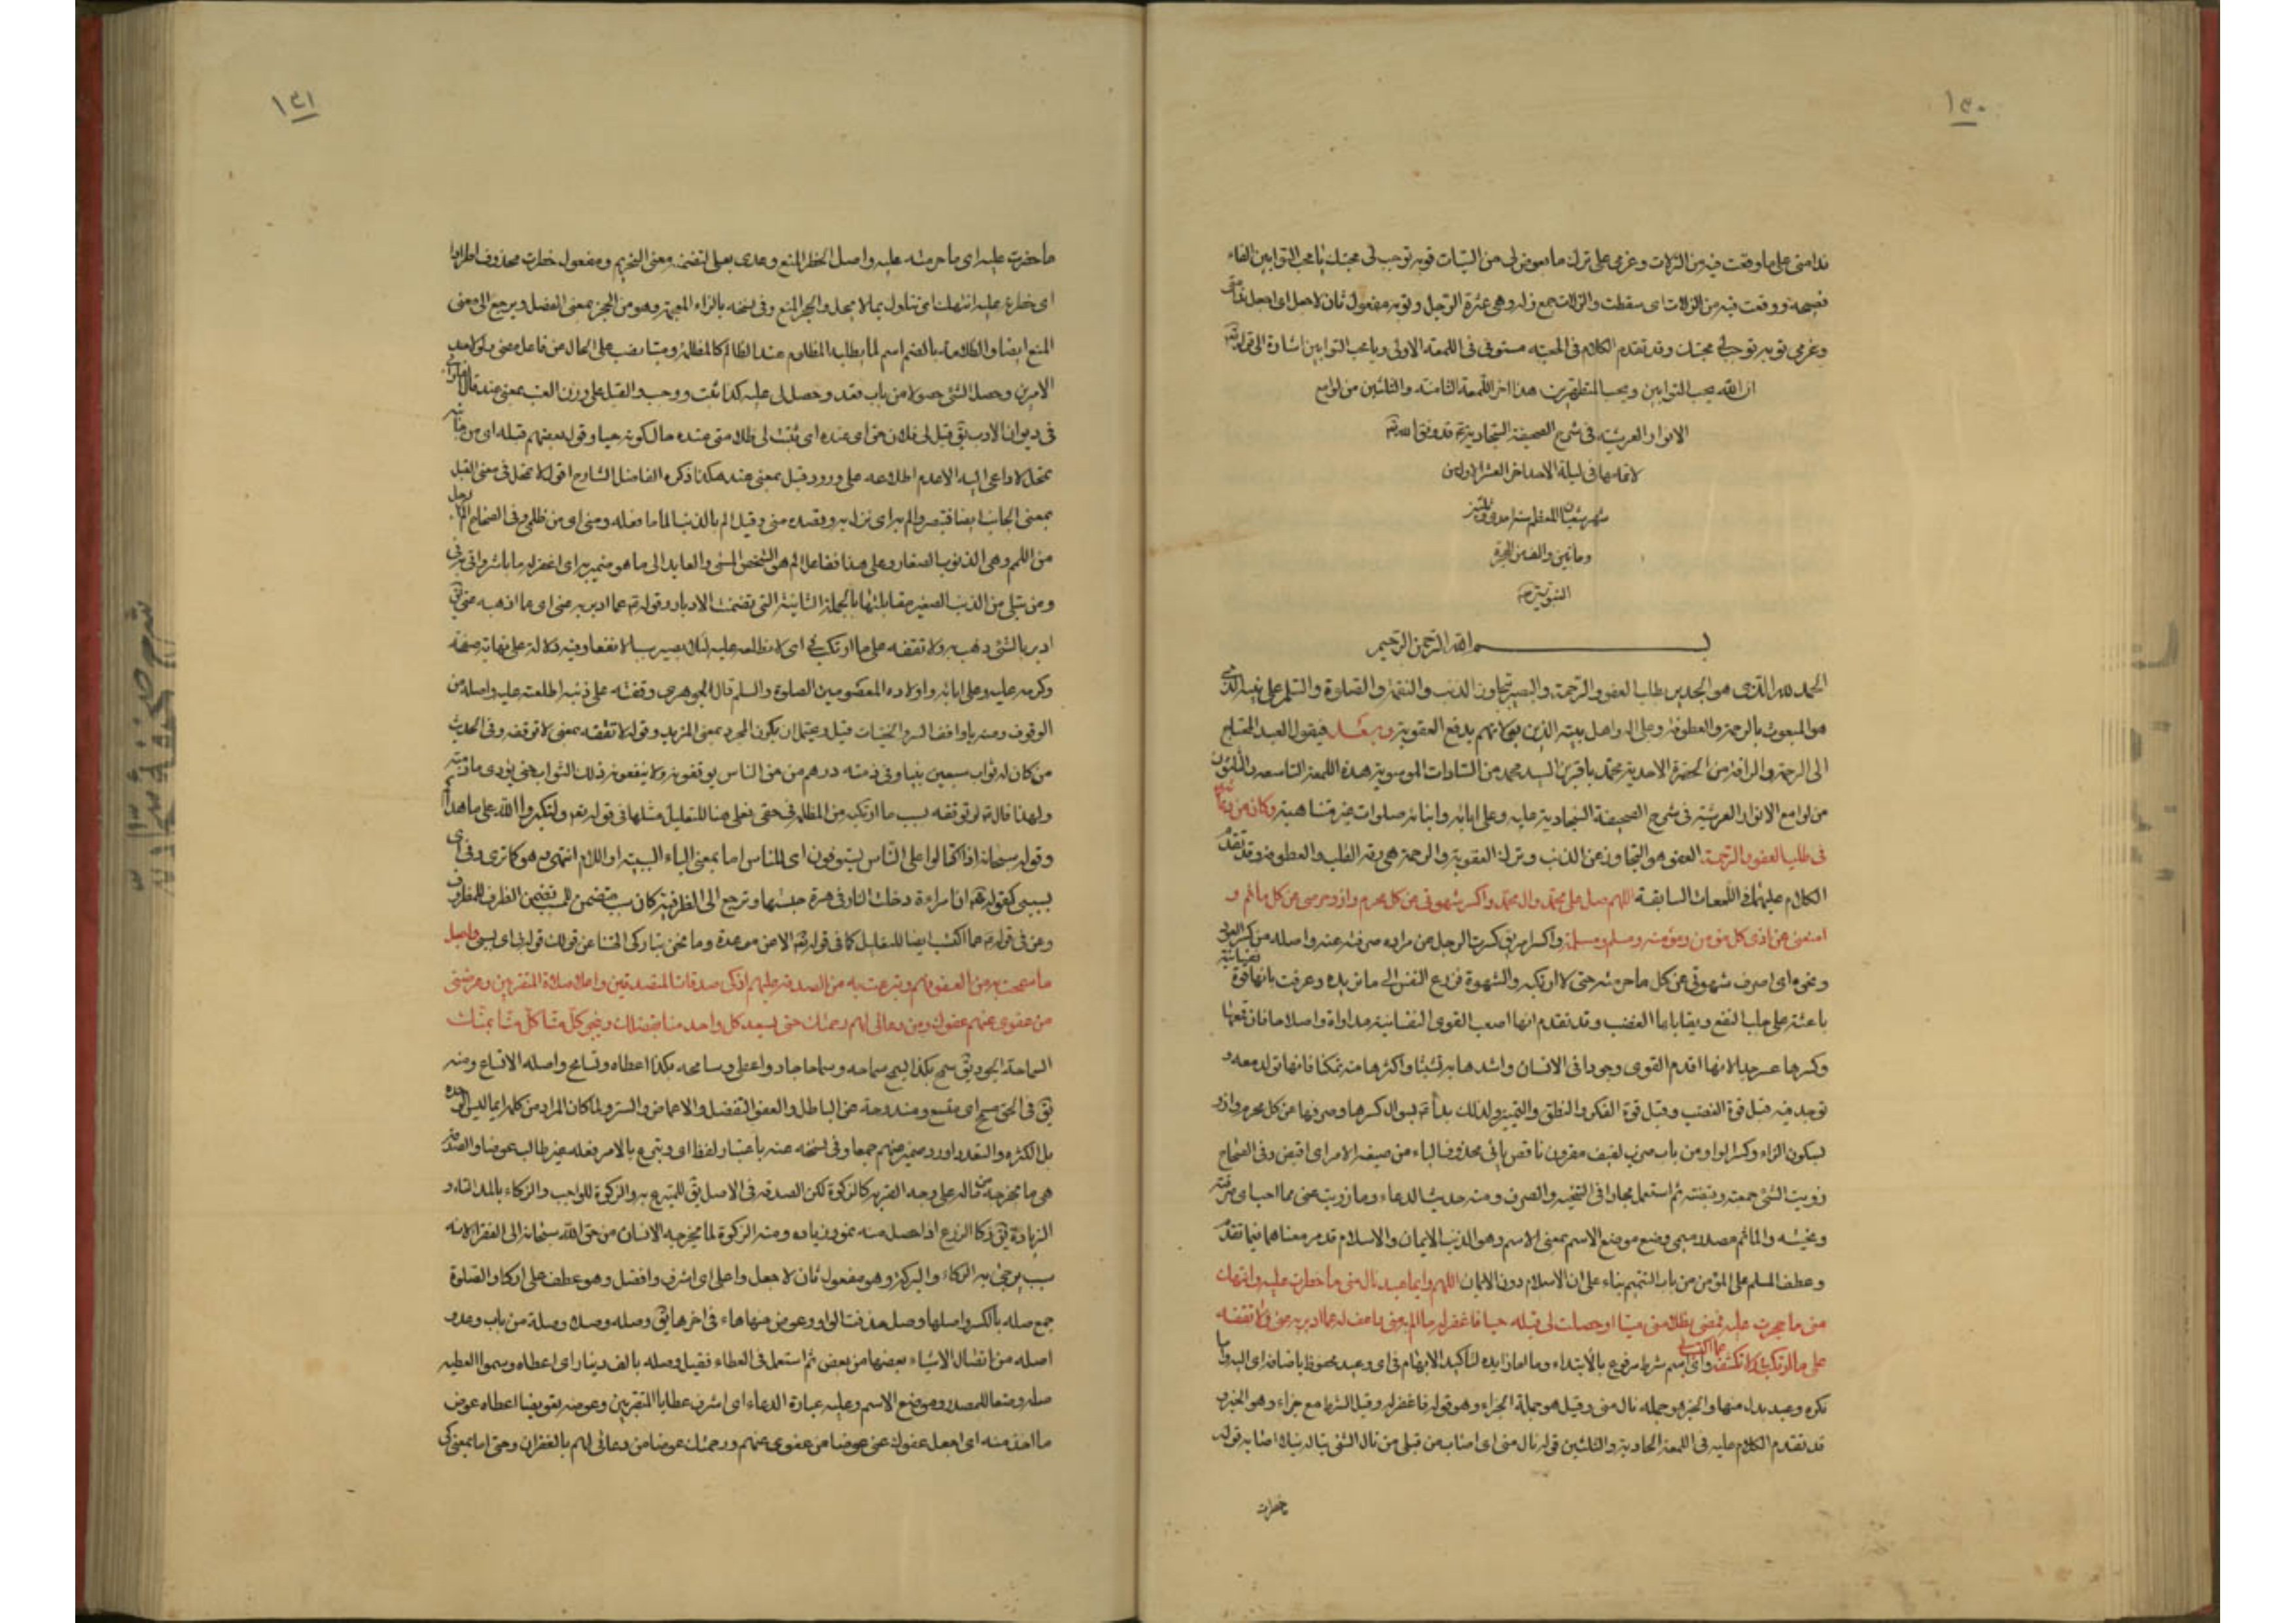 ١٣٠
ندامتى على ما وقعت فيه من الزلات وعزمى على ترك ما يعرض لى من السيئات توبة توجب لى محبتك يا محب التوابين الفاء
فصيحة ووقعت فيه من الزلات اى سقطت والزلات جمع زلة وهى عثرة الرجل وتوبة مفعول ثان لاجعل اى اجعل ندامتى
وعزمى توبة توجب لى محبتك وقد تقدم الكلام فى المحبة مستوفى فى اللمعة الاولى ويا محب التوابين اشارة الى قوله تعالى
ان الله يحب التوابين ويحب المتطهرين هذا اخر اللمعة الثامنة والثلثين من لوامع
الانوار العرشية فى شرح الصحيفة السجادية قد وفق الله تعالى
لاتمامها فى ليلة الاحد اخر العشر الاول من
شهر شعبان المعظم سنة احدى وثلثين
ومأتين والف من الهجرة
النبوية
بسم الله الرحمن الرحيم
الحمد لله الذى هو الجدير بطلب العفو والرحمة والبصير بتجاوز الذنب والنقمة والصلوة والسلم على نبيه الذى
هو المبعوث بالرحمة والعطوفة وعلى اله واهل بيته الذين بولائهم يدفع العقوبة وبعد فيقول العبد المحتاج
الى الرحمة والرافة من الحضرة الاحدية محمد باقر بن السيد محمد من السادات الموسوية هذه اللمعة التاسعة والثلثون
من لوامع الانوار العرشية فى شرح الصحيفة السجادية عليه وعلى ابائه وابنائه صلوات غير متناهية وكان من دعائه
فى طلب العفو والرحمة العفو هو التجاوز عن الذنب وترك العقوبة والرحمة هى رقة القلب والعطوفة وقد تقدم
الكلام عليهما فى اللمعات السابقة اللهم صل على محمد وال محمد واكسر شهوتى عن كل محرم وازو حرصى عن كل ماثم و
امنعنى عن اذى كل مؤمن ومؤمنة ومسلم ومسلمة واكسر امر يق كسرت الرجل عن مراده صرفته عنه واصله من كسر
ونحوه اى اصرف شهوتى عن كل ما حرمته حتى لا ارتكبه والشهوة نزوع النفس الى ما تريده وعرفت بانها قوة نفسانية
باعثة على جلب النفع ويقابلها الغضب وقد تقدم انها اصعب القوى النفسانية مداواة واصلاحا فان قمعها
وكسرها عسر جدا لانها اقدم القوى وجودا فى الانسان واشدها به تشبثا واكثرها منه تمكنا فانها تولد معه و
توجد فيه قبل قوة الغضب وقبل قوة الفكر والنطق والتمييز ولذلك بدأ بسؤال كسرها وصرفها عن كل محرم وازو
بسكون الزاء وكسر الواو من باب ضرب لفيف مقرون ناقص يائى محذوف الياء من صيغة الامر اى اقبض وفى الصحاح
زويت الشئ جمعته وقبضته ثم استعمل مجازا فى التنحية والصرف ومنه حديث الدعاء وما زويت عنى مما احب اى صرفته
ونحيته والماثم مصدر ميمى وضع موضع الاسم بمعنى الاثم وهو الذنب الايمان والاسلام قد مر معناهما فيما تقدم
وعطف المسلم على المؤمن من باب التتميم بناء على ان الاسلام دون الايمان اللهم وايما عبد نال منى ما حظرت عليه وانتهك
منى ما حجرت عليه فمضى بظلامتى ميتا او حصلت لى قبله حيا فاغفر له ما الم به منى واعف له عما ادبر به عنى ولا تقفه
على ما ارتكب فى ولا تكشفه عما اكتسب بى واى اسم شرط مرفوع بالابتداء وما زائدة لتاكيد الابهام فى اى وعبد مخفوظ باضافة اى اليه
نكرة وعبد بدل منها والخبر هو جملة نال منى وقيل هو جملة الجزاء وهو قوله فاغفر له وقيل الشرط مع جزاء وهو الخبر
قد تقدم الكلام عليه فى اللمعة الحادية والثلثين قوله نال منى اى اصاب من قبلى من نال الشئ يناله نيلا اصابه قوله
حظرت
١٣١
ما حضرت عليه اى ما حرمته عليه واصل الحظر المنع وعدى بعلى لتضمنه معنى التحريم ومفعول حظرت محذوف اطرادا
اى حظرته عليه انتهك اى تناول بما لا يحل والحجر المنع وفى نسخة بالزاء المعجمة وهو من الحجز بمعنى الفصل ويرجع الى معنى
المنع ايضا والظلامة بالضم اسم لما يطلبه المظلوم عند الظالم كالمظلمة وميتا نصب على الحال من فاعل مضى
الامرين وحصل الشئ حصولا من باب قعد وحصل لى عليه كذا ثبت ووجب والقبل على وزن العنب بمعنى عند قال
فى ديوان الادب يق قبل فلان حق اى عنده اى ثبتت لى ظلامتى عنده حال كونه حيا وقول بعضهم قبله اى من جانبه
تمحل لا داعى اليه الا عدم اطلاعه على ورود قبل بمعنى عند هكذا ذكره الفاضل الشارح اقول لا تمحل فى معنى القبل
بمعنى الجانب ايضا فتبصر والم به اى نزل به وقصده منى وقيل الم بالذنب الماما فعله ومنى اى من ظلمى وفى الصحاح الم الرجل
من اللمم وهى الذنوب الصغار وعلى هذا ففاعل الم هو الشخص المسئ والعايد الى ما هو ضمير به اى اغفر له ما باشر
ومن قبلى من الذنب الصغير مقابلتها بالجملة الثانية التى تضمنت الادبار وقوله عما ادبر به عنى اى ما اذهبه عنى يق
ادبر بالشئ ذهب به ولا تقفه على ما ارتكب فى اى لا تطلعه عليه لئلا يصير سببا لانفعاله وفيه دلالة على نهاية صفحه
وكرمه عليه وعلى ابائه واولاده المعصومين الصلوة والسلم قال الجوهرى وقفته على ذنبه اطلعته عليه واصله من
الوقوف ومنه يا واقف السر والخفيات قيل ويحتمل ان يكون المجرد بمعنى المزيد وقوله لا تقفه بمعنى لا توقفه وفى الحديث
من كان له ثواب سبعين نبيا وفى ذمته درهم من حق الناس يوقفونه ولا ينفعونه ذلك الثواب حتى يؤدى ما فى ذمته
ولهذا قال لا توقفه بسبب ما ارتكبه من المظالم فى حقى فعلى هنا للتعليل مثلها فى قوله تعالى ولتكبروا الله على ما هداكم
وقوله سبحانه اذا اكتالوا على الناس يستوفون اى للناس اما بمعنى الباء السببية او اللام انتهى وهو كما ترى وفى اى
بسببى كقوله ان امراءة دخلت النار فى هرة حبستها وترجع الى الظرفية كان سبب متضمن للمسبب تضمن الظرف للمظروف
وعن فى قوله عما اكتسب ايضا للتعليل كما فى قوله تعالى الا عن موعدة وما نحن بتاركى الهتنا عن قولك قوله بى اى بسببى واجعل
ما سمحت به من العفو عنهم وتبرعت به من الصدقة عليهم ازكى صدقات المتصدقين واعلى صلات المتقربين وعوضنى
من عفوى عنهم عفوك ومن دعائى لهم رحمتك حتى يسعد كل واحد منا بفضلك وينجو كل منا بمنك
السماحة الجود يق سمح بكذا يسمح سماحة وسماحا جاد واعطى وسامحه بكذا اعطاه وتسامح واصله الاتساع ومنه
يق فى الحق مسمح اى متسع ومندوحة عن الباطل والعفو التفضل والاغماض والستر ولما كان المراد من كلمة ايما ليس الوحدة
بل الكثرة والتعدد اورد ضمير عنهم جمعا وفى نسخة عنه باعتبار لفظ اى وتبرع بالامر فعله غير طالب عوضا والصدقة
هى ما تخرجه من ماله على وجه القربة كالزكوة لكن الصدقة فى الاصل يق للمتبرع به والزكوة للواجب والزكاء بالمد النماء و
الزيادة يق زكا الزرع اذا حصل منه نمو وزيادة ومنه الزكوة لما يخرجه الانسان من حق الله سبحانه الى الفقراء لانه
سبب يرجى به الزكاء والبركة وهو مفعول ثان لاجعل واعلى اى اشرف وافضل وهو عطف على ازكى والصلات
جمع صلة بالكسر واصلها وصل حذفت الواو وعوض عنها هاء فى اخرها يق وصله وصلا وصلة من باب وعد و
اصله من اتصال الاشياء بعضها من بعض ثم استعمل فى العطاء فقيل وصله بالف دينار اى اعطاه وسموا العطية
صلة وضعا للمصدر موضع الاسم وعليه عبارة الدعاء اى اشرف عطايا المتقربين وعوضه تعويضا اعطاه عوض
ما اخذ منه اى اجعل عفوك عنى عوضا من عفوى عنهم ورحمتك عوضا من دعائى لهم بالغفران وحتى اما بمعنى كى